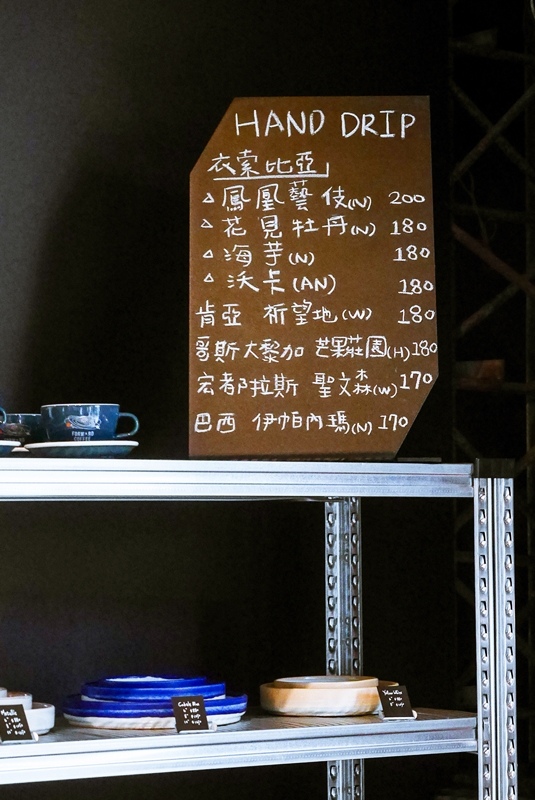 HAND DRIP
衣索比亞
△鳳凰藝伎(N) 200
△花見牡丹(N) 180
△海芋(N) 180
△沃卡(AN) 180
肯亞 祈望地(W) 180
哥斯大黎加 芒果莊園(H)180
宏都拉斯 聖文森(W)170
巴西 伊帕內瑪(N) 170
COFFEE